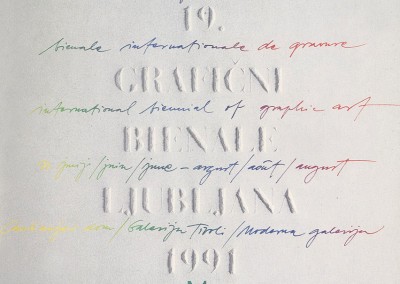 19.
bienale internationale de gravure
GRAFIČNI
international biennial of graphic art
BIENALE
junij / juin / june - avgust / août / august
LJUBLJANA
/ Galerija Tivoli / Moderna galerija
1991